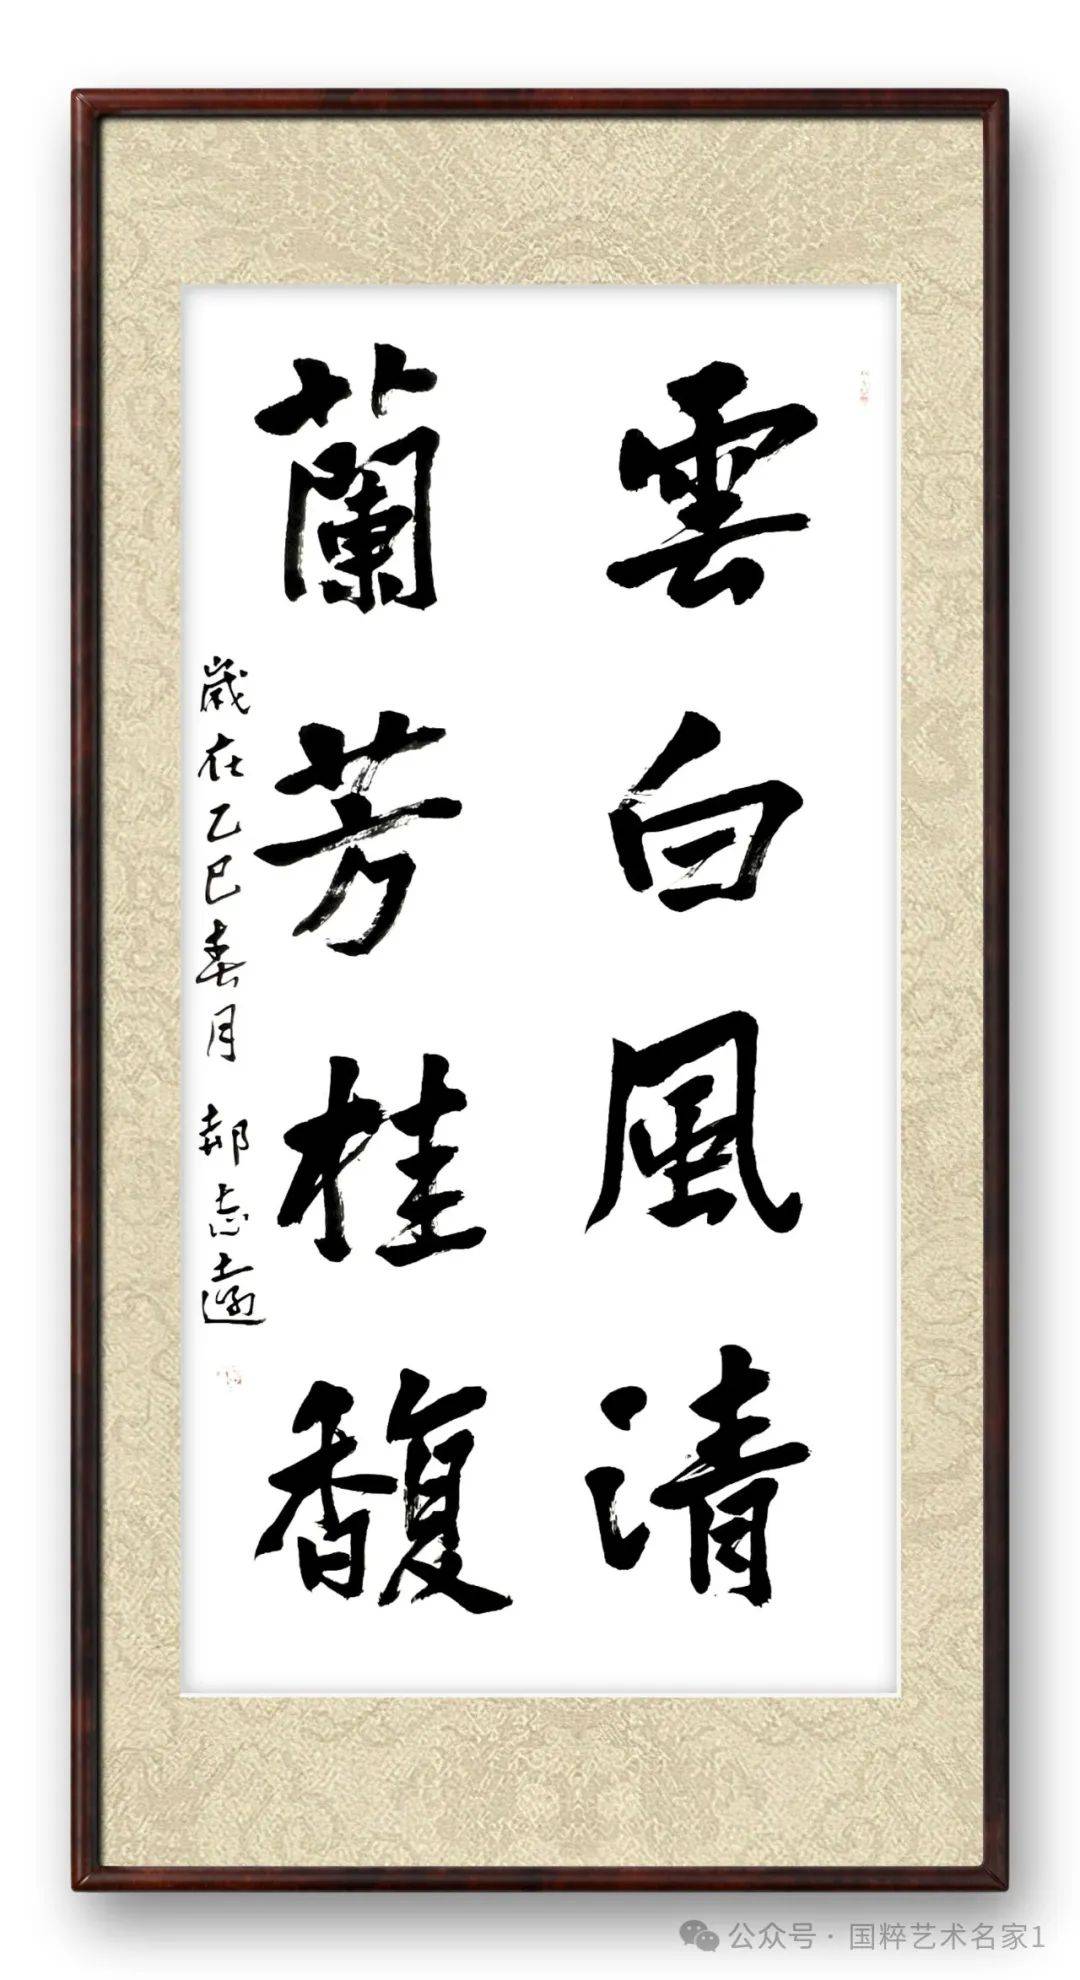 雲白風清
蘭芳桂馥
歲在乙巳春月 郝志遠
公众号·国粹艺术名家1